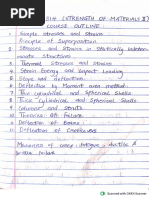 314 (STRENGTH OF MATERIALS II)
COURSE OUTLINE
1 Simple stresses and Strain
Principle of Superposition
3 Stresses and Strains in Statically Indeter-
minate Structures
Thermal Stresses and Strains
Strain Energy and Impact Loading
Slope and deflection
Deflection by Moment area method
Thin cylindrical and Spherical Shells
Thick cylindrical and Spherical Shells
Columns and Struts
Theories of Failure
Deflection of Beams
11 Deflection of Cantilevers
Mechanics of creep, fatigue, ductile &
brittle failure
CS Scanned with CamScanner